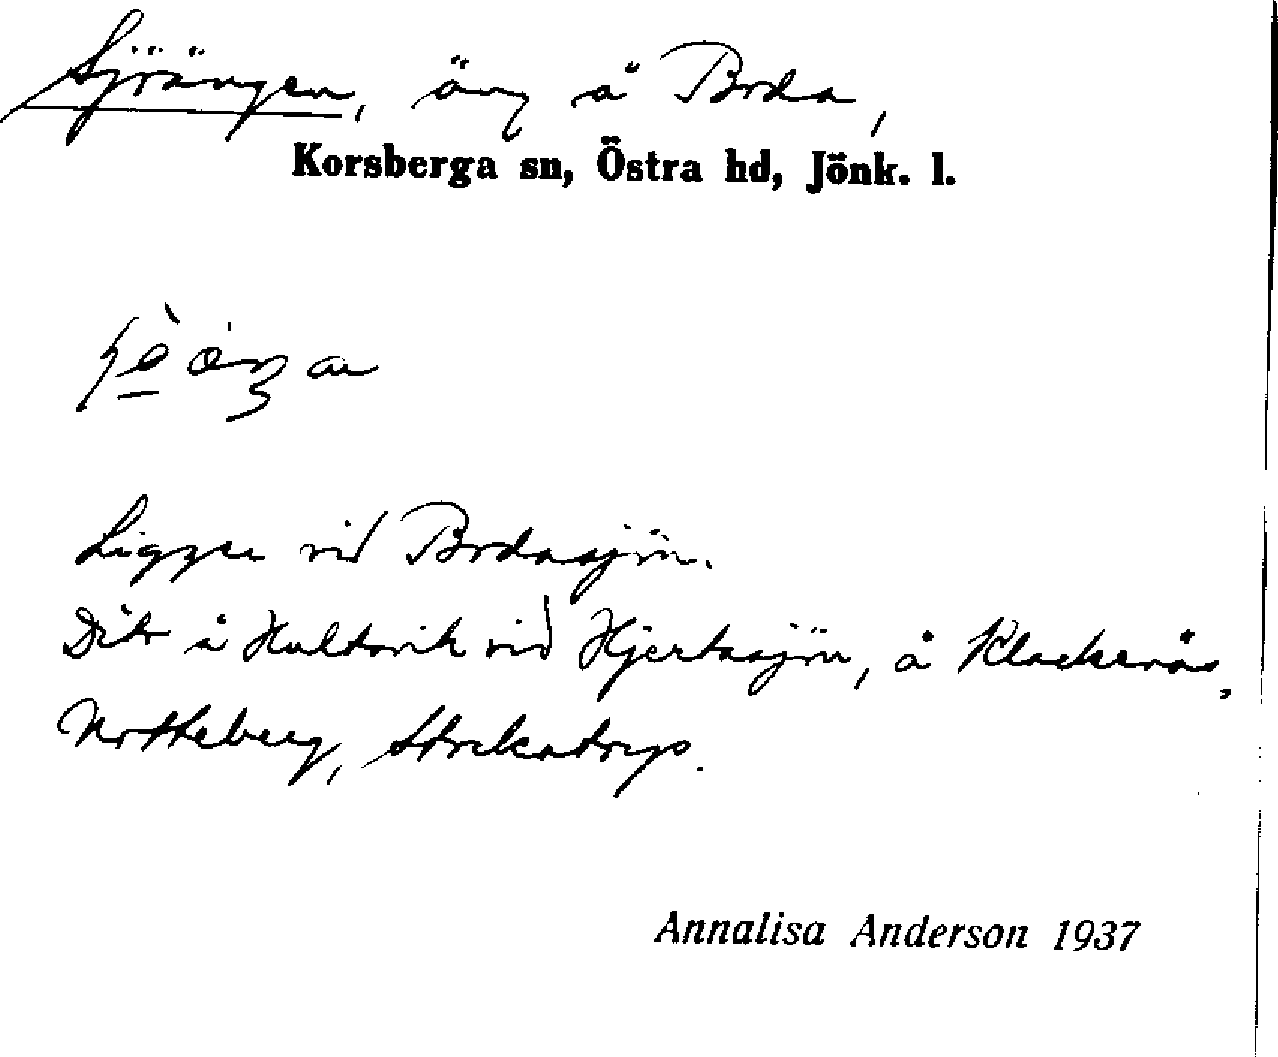 Sjöängen, äng å Boda,
Korsberga sn, Östra hd, Jönk. l.
Ligger vid Bodasjön.
Dito å Hultsvik vid Hjertasjön, å Klackenäs,
Notteberg, Stockatorp.
Annalisa Anderson 1937